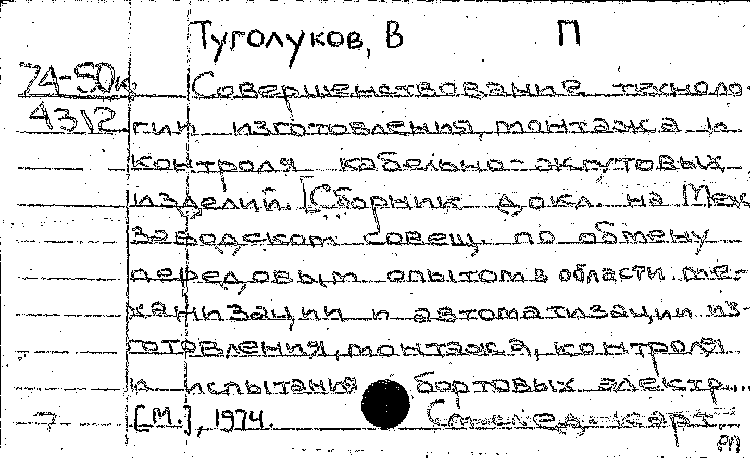 Туголуков, В П
74-50к Совершенствование техноло-
4312 гии изготовления, монтажа и
контроля кабельно-жгутовых
изделий. [Сборник докл. на Меж
заводском совещ. по обмену
передовым опытом в области ме-
ханизации и автоматизации из-
готовления, монтажа, контроля
и испытания бортовых электр...
[М.], 1974. См. след. карт.